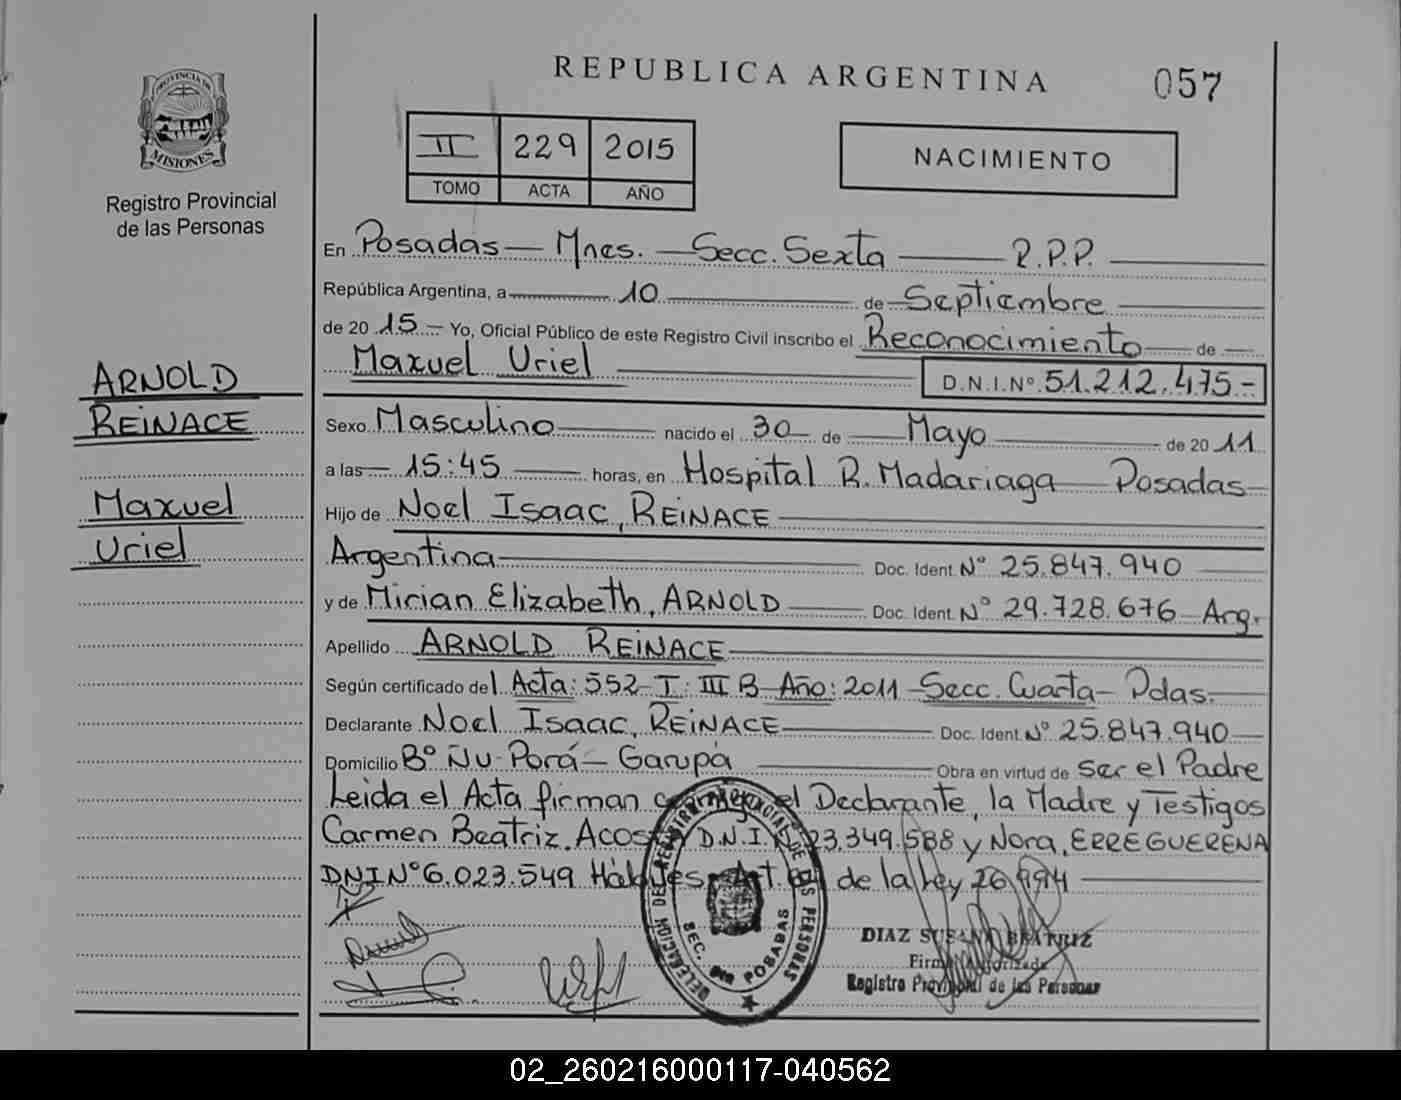 REPUBLICA ARGENTINA
057
PROVINCIA DE
MISIONES
Registro Provincial
de las Personas
II 229 2015
TOMO ACTA AÑO
NACIMIENTO
ARNOLD
REINACE
Maxuel
Uriel
En Posadas - Mnes. - Secc. Sexta R.P.P.
República Argentina, a 10 de Septiembre
de 20 15 - Yo, Oficial Público de este Registro Civil inscribo el Reconocimiento de
Maxuel Uriel D.N.I.Nº 51.212.475.-
Sexo Masculino nacido el 30 de Mayo de 20 11
a las 15:45 horas, en Hospital R. Madariaga Posadas
Hijo de Noel Isaac, REINACE
Argentina Doc. Ident. Nº 25.847.940
y de Mirian Elizabeth, ARNOLD Doc. Ident. Nº 29.728.676 - Arg.
Apellido ARNOLD REINACE
Según certificado del Acta: 552 - T: III B - Año: 2011 - Secc. Cuarta - Pdas.
Declarante Noel Isaac, REINACE Doc. Ident. Nº 25.847.940
Domicilio Bº Ñu-Porá - Garupá Obra en virtud de ser el Padre
Leida el Acta firman el Declarante, la Madre y Testigos
Carmen Beatriz, D.N.I. 23.349.588 y Nora, ERREGUERENA
DNI Nº 6.023.549 Hábiles. Art. de la Ley 26.994
DELEGACION DEL REGISTRO PROVINCIAL DE LAS PERSONAS
SEC. 6ta POSADAS
DIAZ SUSANA BEATRIZ
Firma Autorizada
Registro Provincial de las Personas
02_260216000117-040562